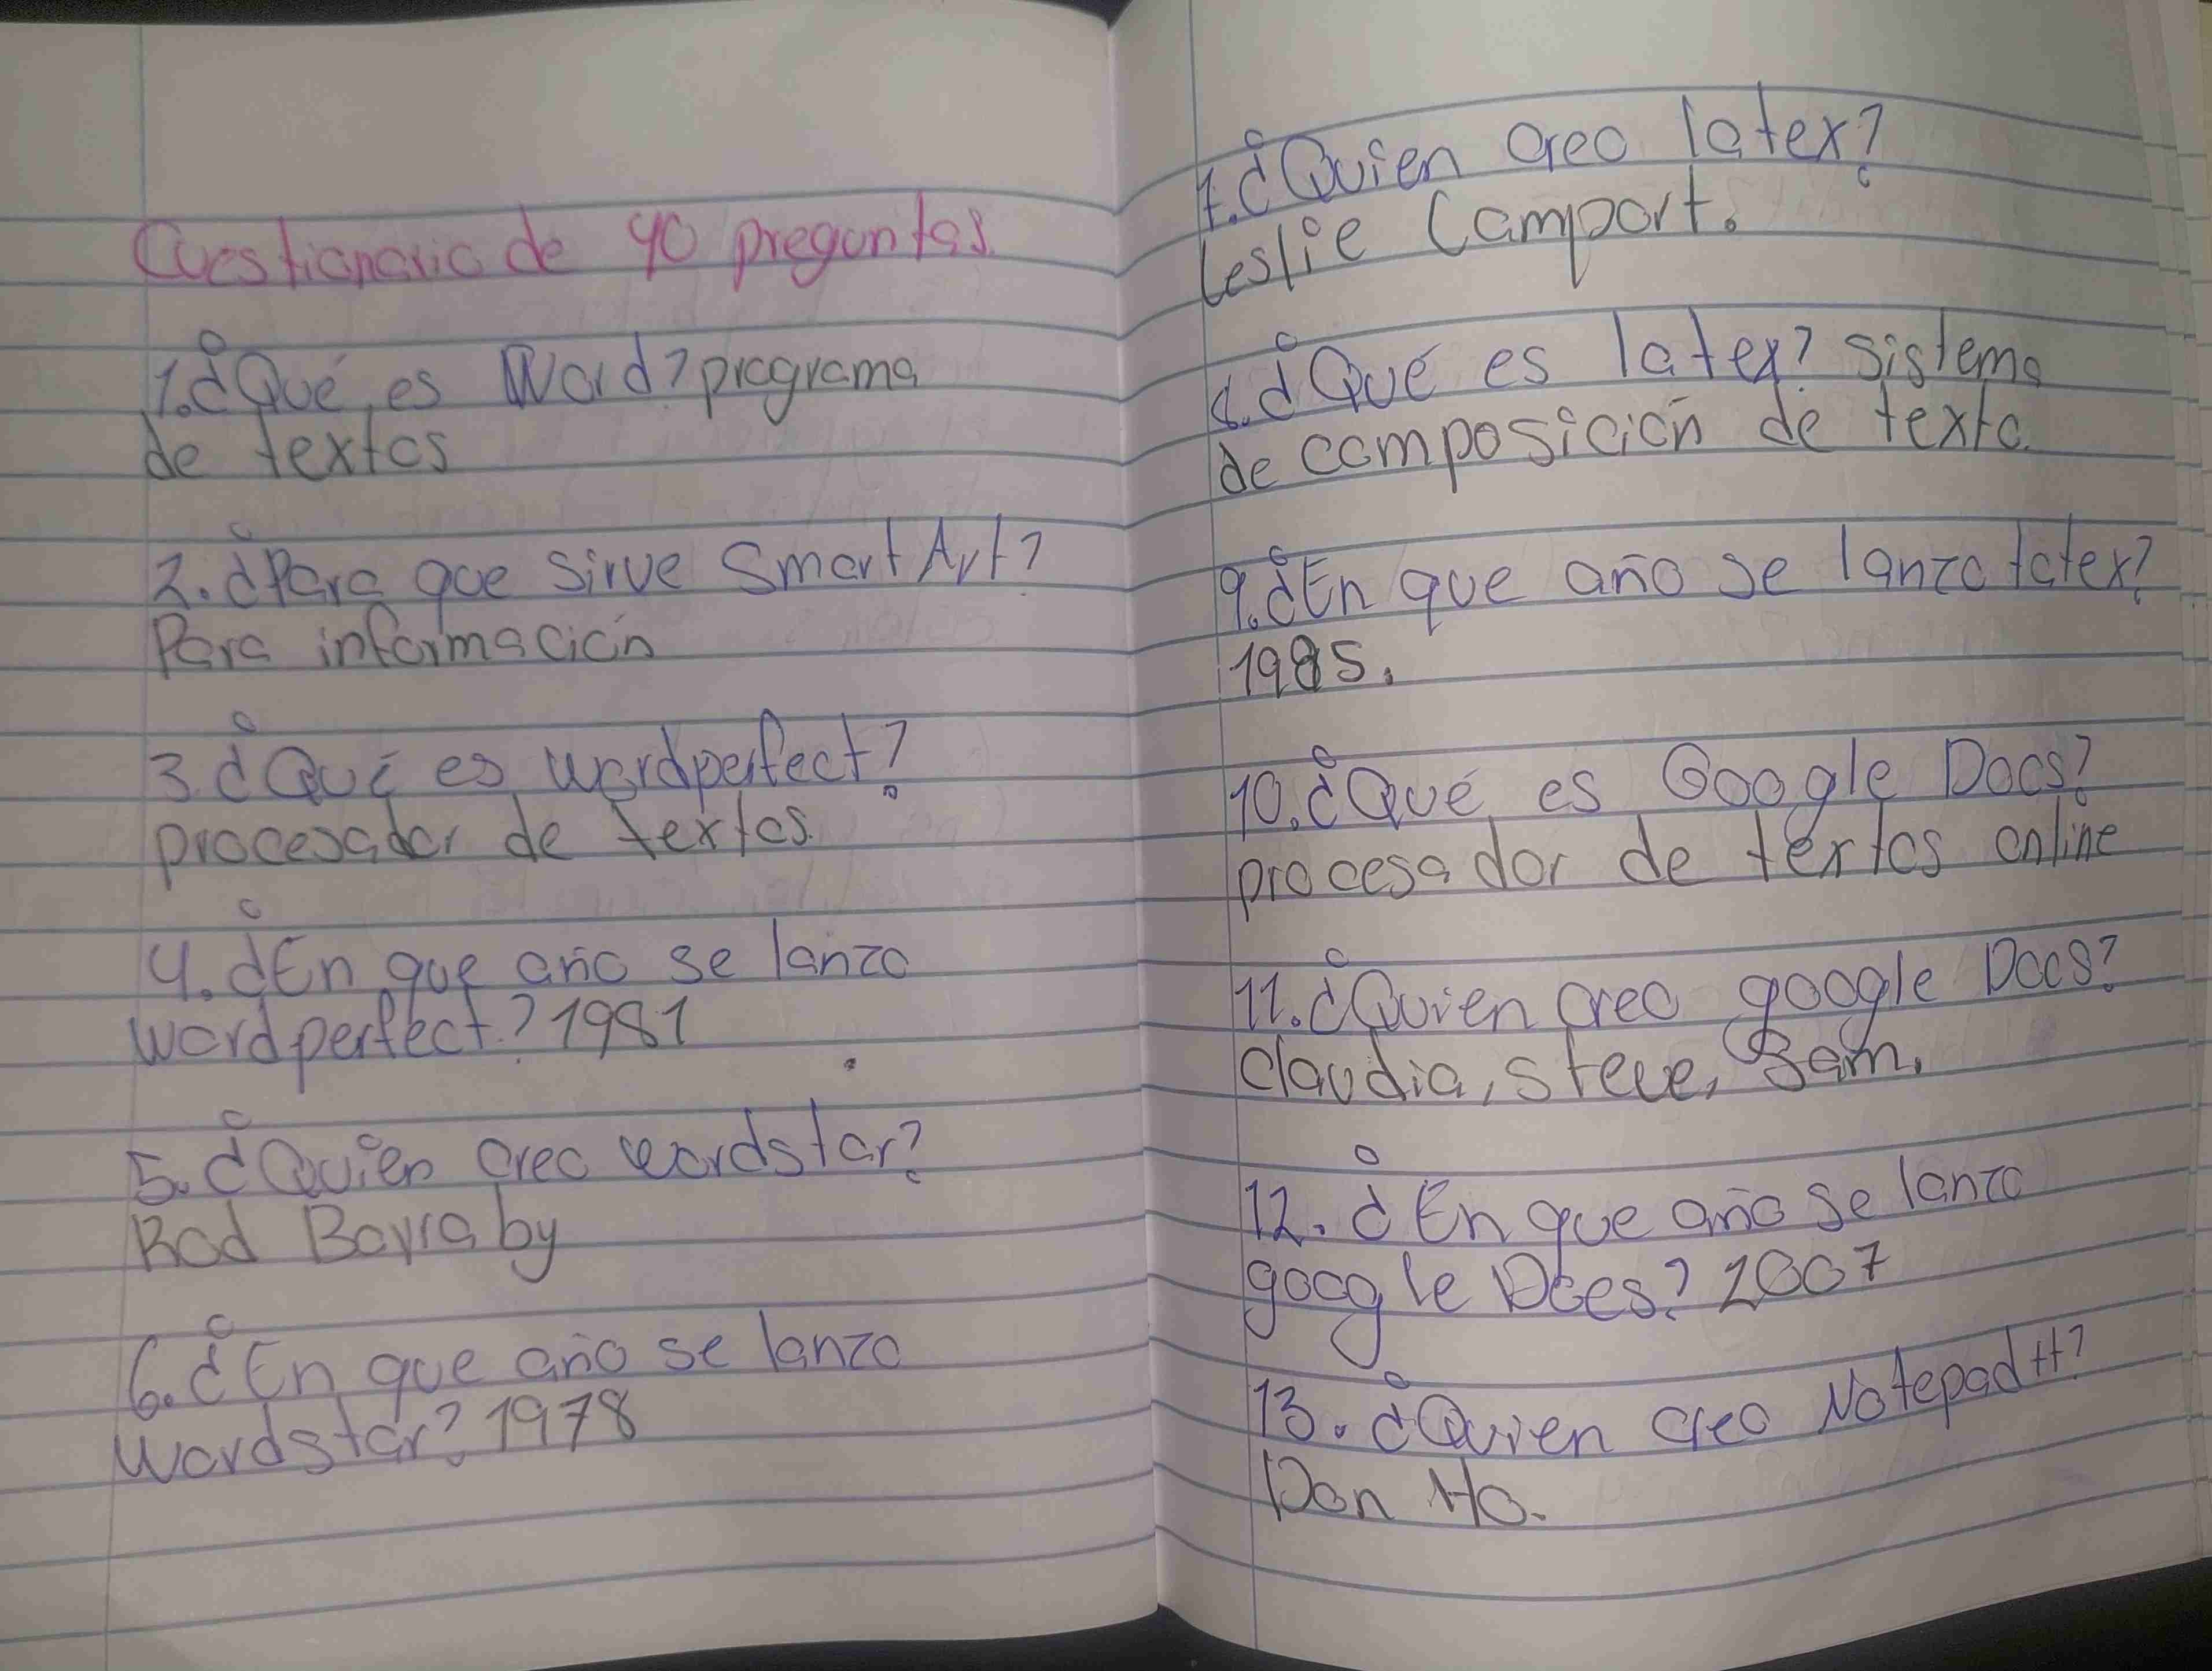 Cuestionario de 40 preguntas.
1.¿Qué es Word? programa
de textos
2. ¿Para que sirve SmartArt?
Para información
3. ¿Qué es wordperfect?
procesador de textos.
4. ¿En que año se lanzo
wordperfect? 1981
5. ¿Quien creo wordstar?
Rod Bayraby
6. ¿En que año se lanzo
Wordstar? 1978
7. ¿Quien creo latex?
Leslie Camport.
8. ¿Qué es latex? sistema
de composición de texto.
9. ¿En que año se lanzo latex?
1985.
10. ¿Qué es Google Docs?
procesador de textos online
11. ¿Quien creo google Docs?
Claudia, steve, Sam.
12. ¿En que año se lanzo
google Docs? 2007
13. ¿Quien creo Notepad++?
Don Ho.